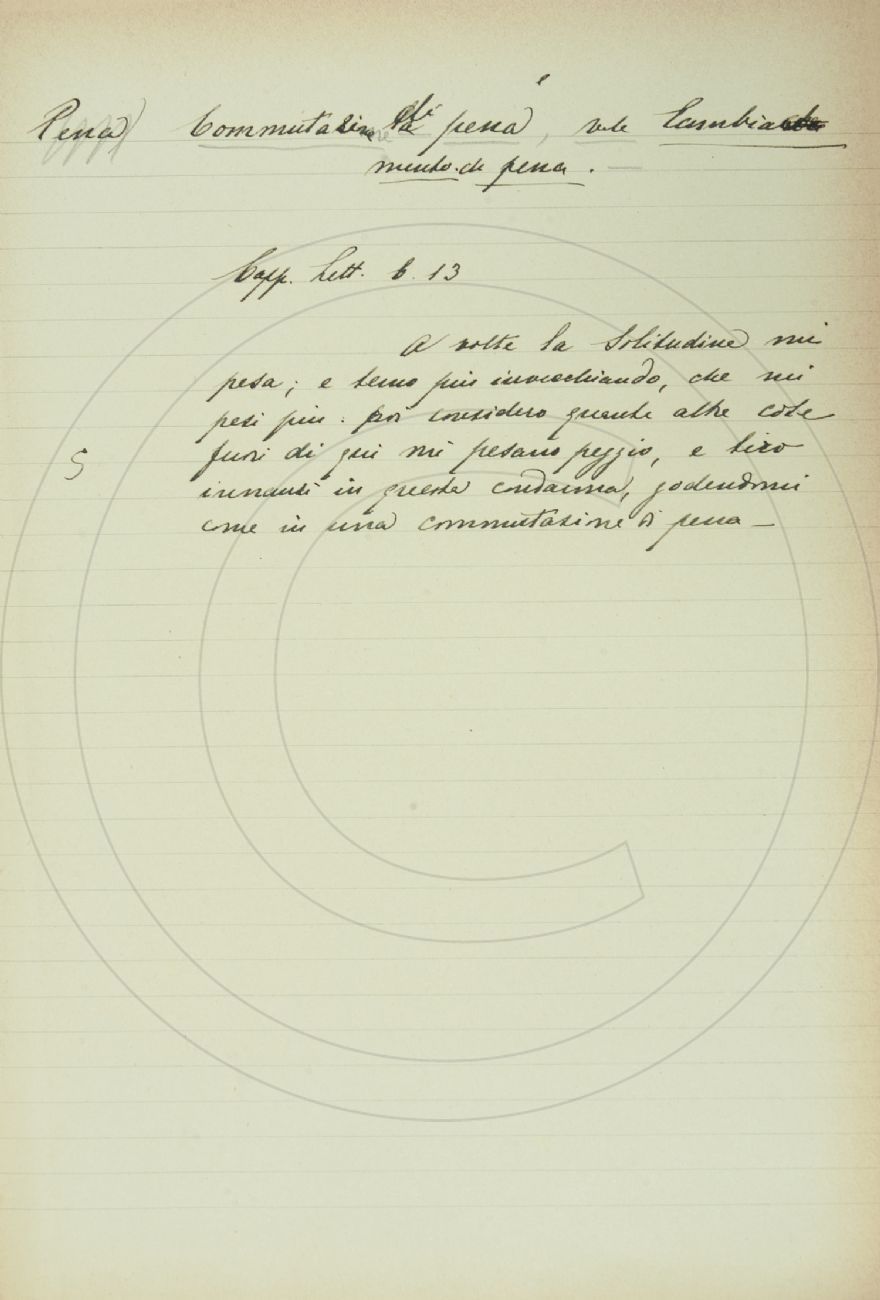 Pena) Commutazione di pena, vale Cambia
mento di pena. —
Capp. Lett. 6. 13
A volte la solitudine mi
pesa; e temo più invecchiando, che mi
pesi più. Poi considero quante altre cose
fuori di qui mi pesano peggio, e tiro
innanzi in questa condanna, godendomi
come in una commutazione di pena —